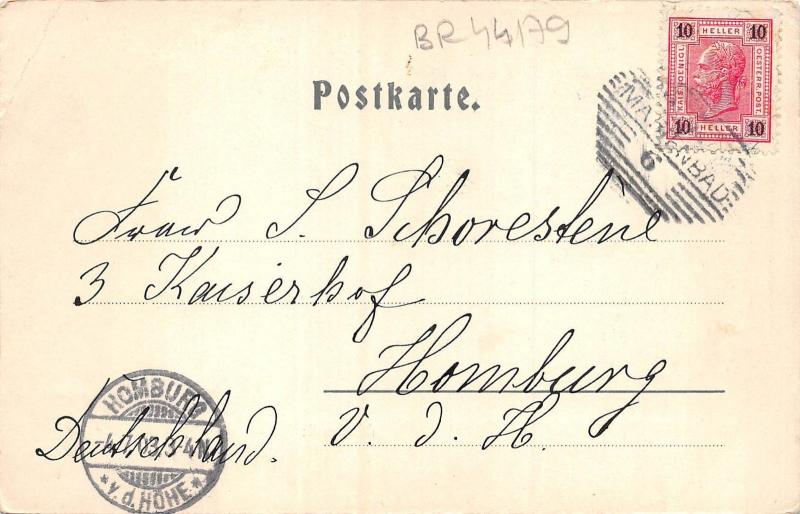 BR 44179
10 HELLER 10
KAIS. KOENIGL.
OESTERR. POST.
10 HELLER 10
Postkarte.
MARIENBAD
6
Frau S. Schorestene
3 Kaiserhof
Homburg
v. d. H.
Deutschland.
HOMBURG
* v. d. HÖHE *